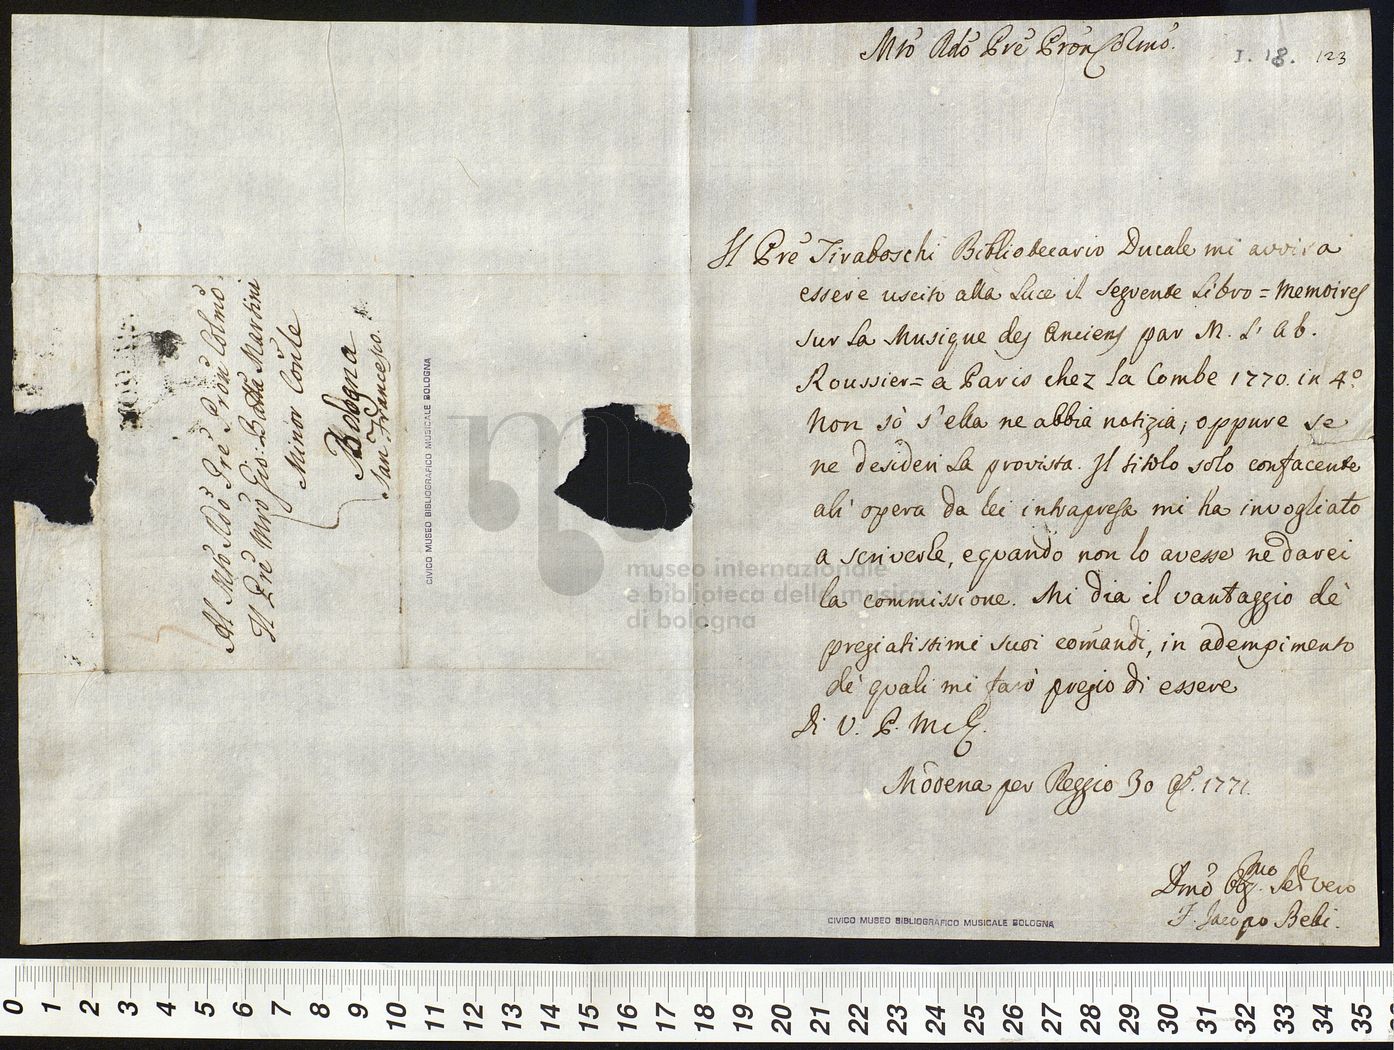 Mro Rdo Pre Pron Colmo.
I. 18. 123
Il Pre Tiraboschi Bibliotecario Ducale mi avvisa
essere uscito alla Luce il seguente Libro = Memoires
sur La Musique des Anciens par M. L' Ab.
Roussier = a Paris chez la Combe 1770. in 4.o
Non sò s'ella ne abbia notizia; oppure se
ne desideri La provista. Il titolo solo confacente
all' opera da lei intrapresa mi ha invogliato
a scriverle, e quando non lo avesse ne darei
la commissione. Mi dia il vantaggio de'
pregiatissimi suoi comandi, in adempimento
de' quali mi farò pregio di essere
Di V. P. M
Modena per Reggio 30 1771.
Dmo Obgmo Servero
F. Jacopo Belli.
Al Mro Rdo Pre Pron Colmo
Il Pre Mro Gio: Batta Martini
Minor Conle
Bologna
San Francesco.
CIVICO MUSEO BIBLIOGRAFICO MUSICALE BOLOGNA
CIVICO MUSEO BIBLIOGRAFICO MUSICALE BOLOGNA
museo internazionale
e biblioteca della musica
di bologna
0 1 2 3 4 5 6 7 8 9 10 11 12 13 14 15 16 17 18 19 20 21 22 23 24 25 26 27 28 29 30 31 32 33 34 35